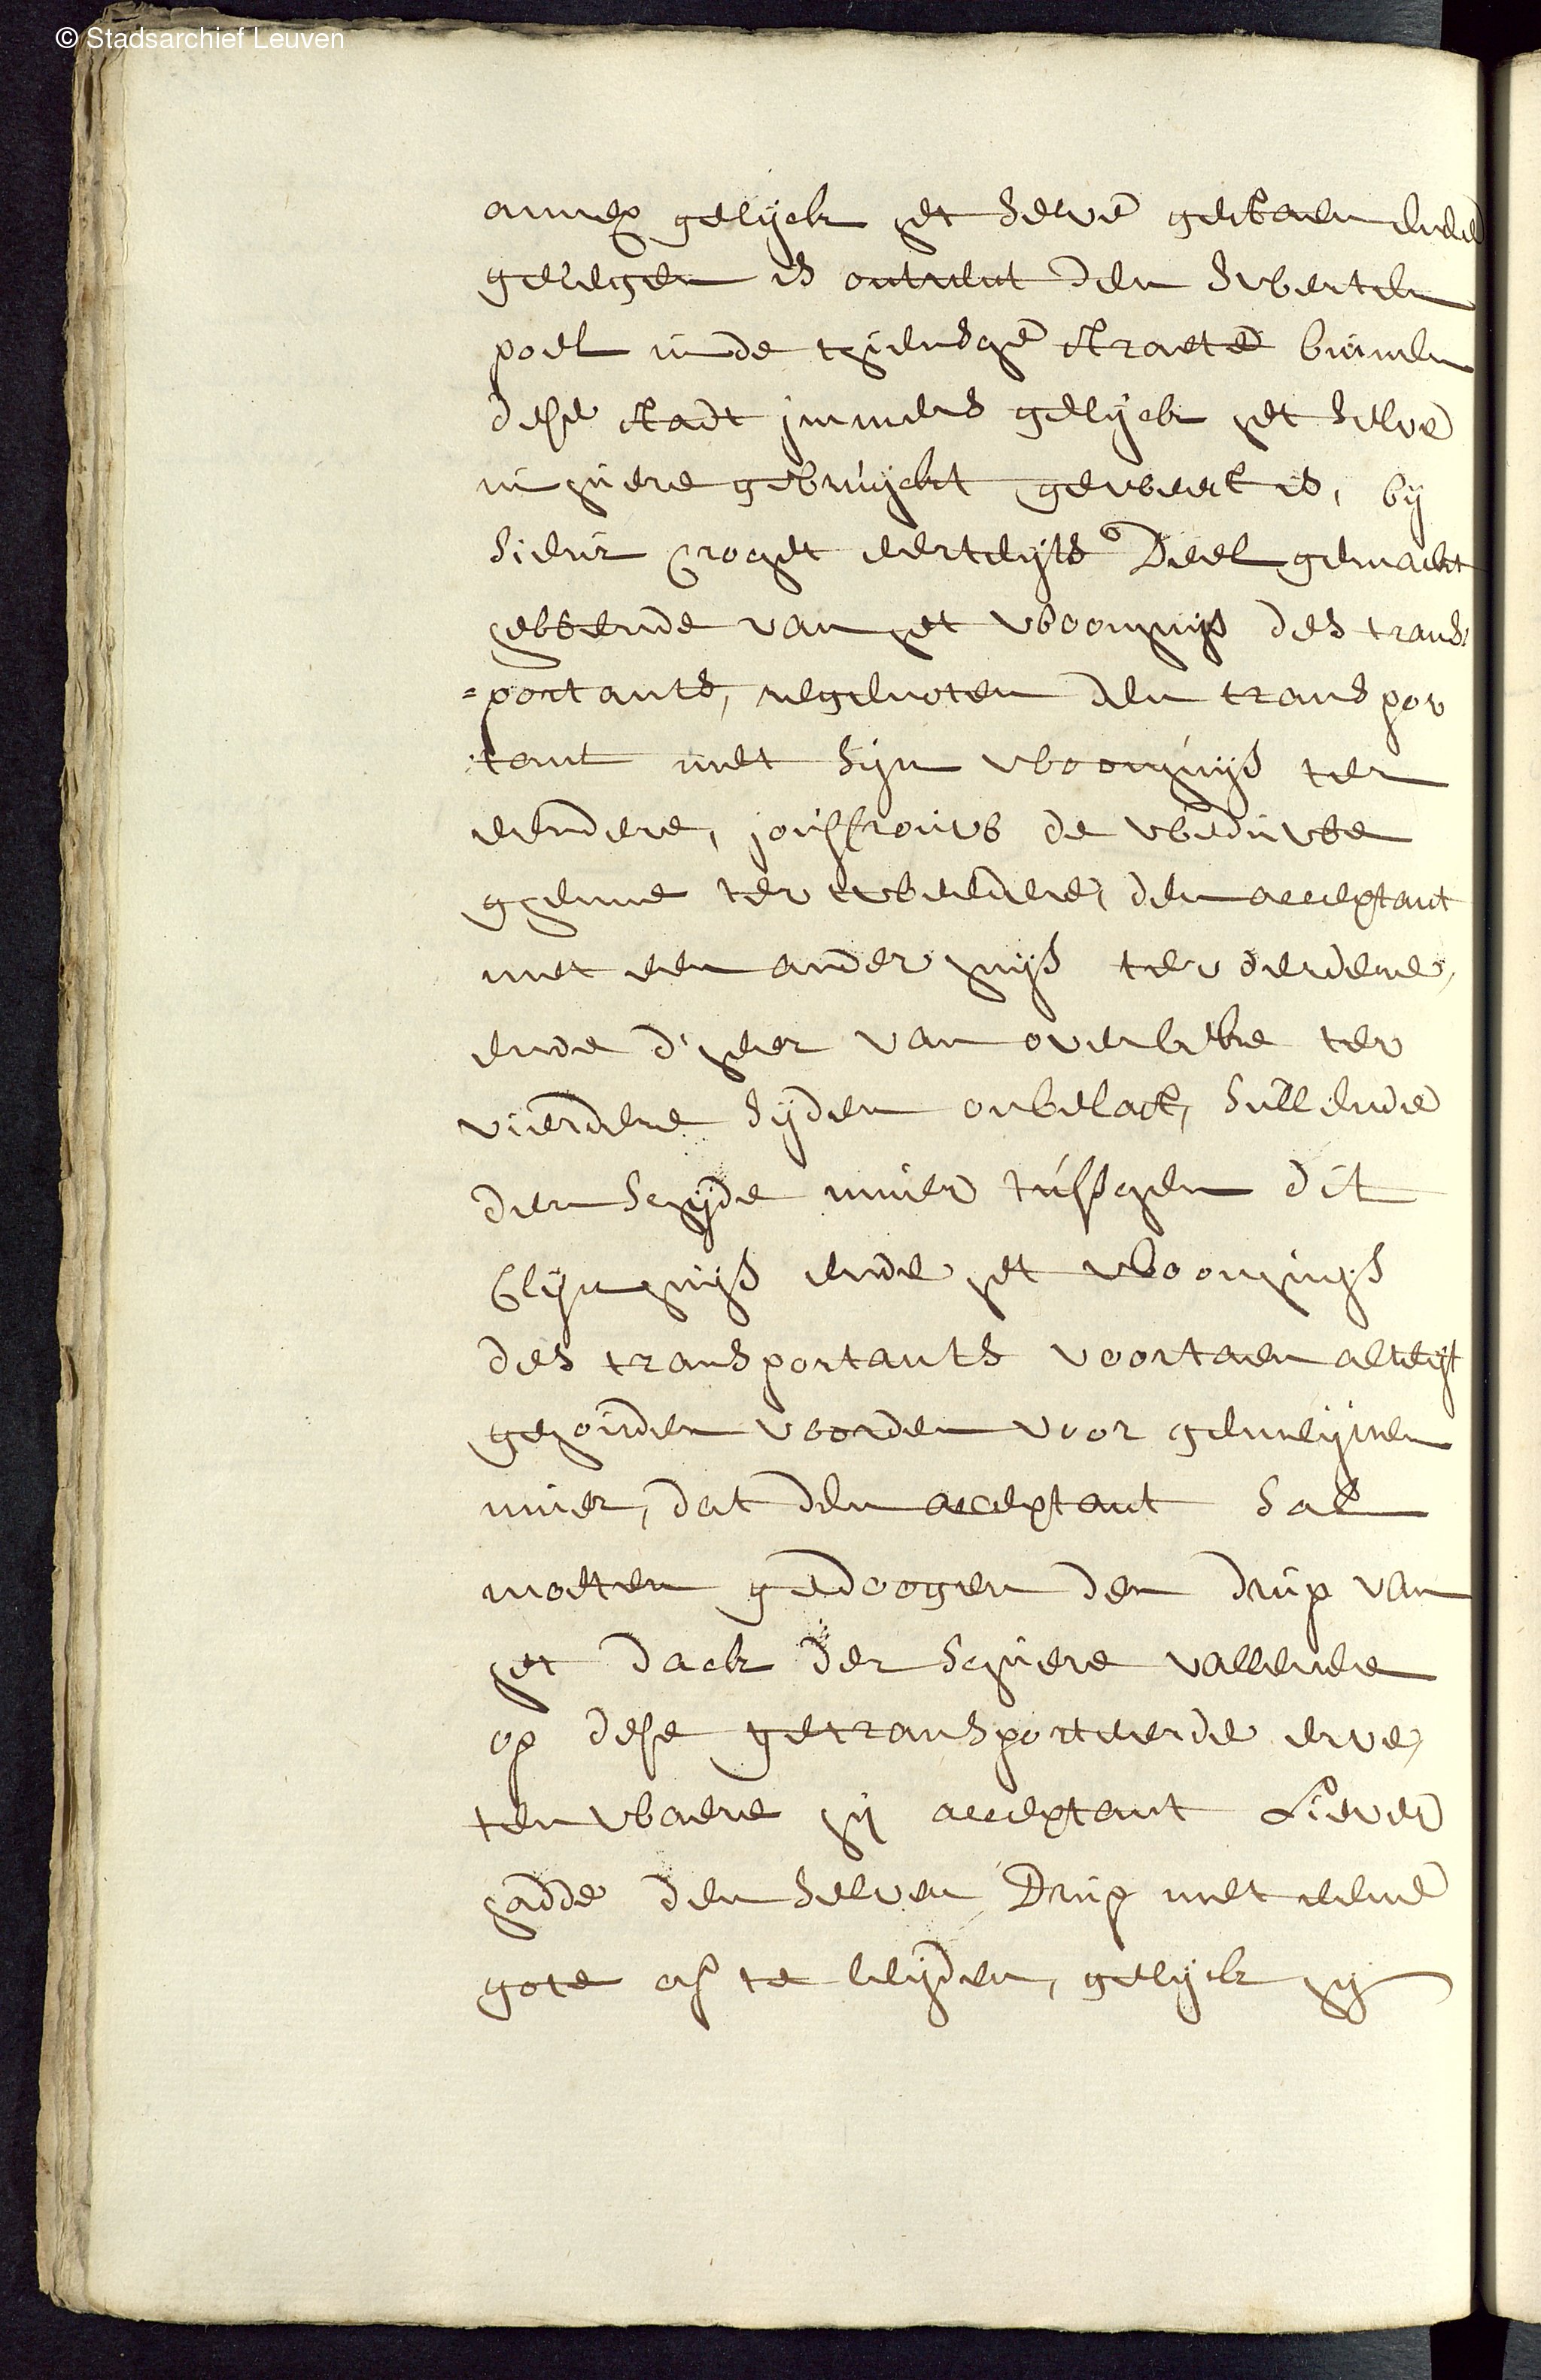 © Stadsarchief Leuven
annex gelijck het selve gestaen ende
gelegen is ontrent den swerten
poel inde thiensche straete binnen
dese stadt immers gelijck het selve
in huere gebruyckt geweest is, bij
sieur eerteyts Deel gemackt
hebbende van het woonhuys des trans
=portants, regenoten den transpor
tant met sijn woonhuys ter
eendere, jouffrouw de weduwe
ghenne ter tweedere, den acceptant
met een ander huys ter derdere,
ende d'heer van overbeke ter
vierdere sijden onbelast, sullende
den scheyde muer tusschen dit
cleyn huys ende het woonhuys
des transportants voortaen alteyt
gehouden worden voor gemeynen
muer, dat den acceptant sal
moeten gedoogen den drup van
het dack der schuere vallende
op dese getransporteerde erve,
ten waere hy acceptant Liever
hadde den selven Drup met eene
gote af te leyden, gelijck hy